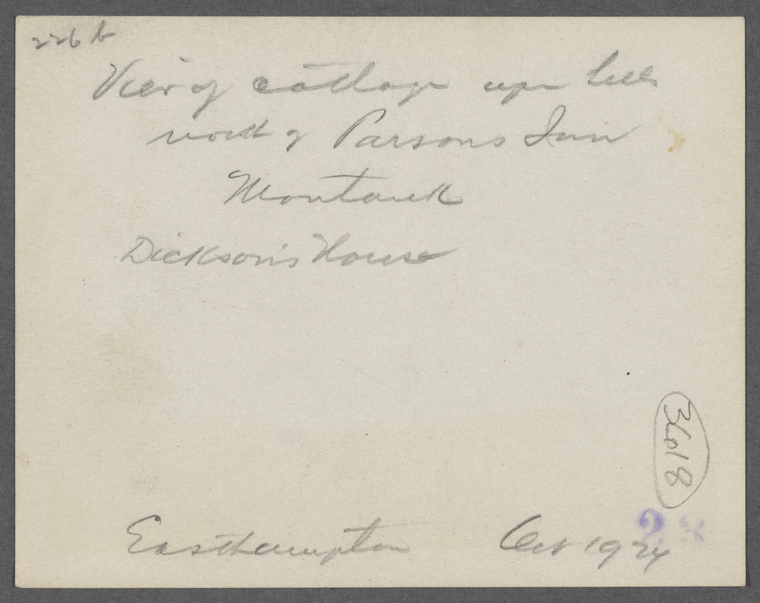 226 b
View of cottage upon hill
north of Parsons Inn
Montauk
Dickson's House
3618
23
Easthampton Oct 1924